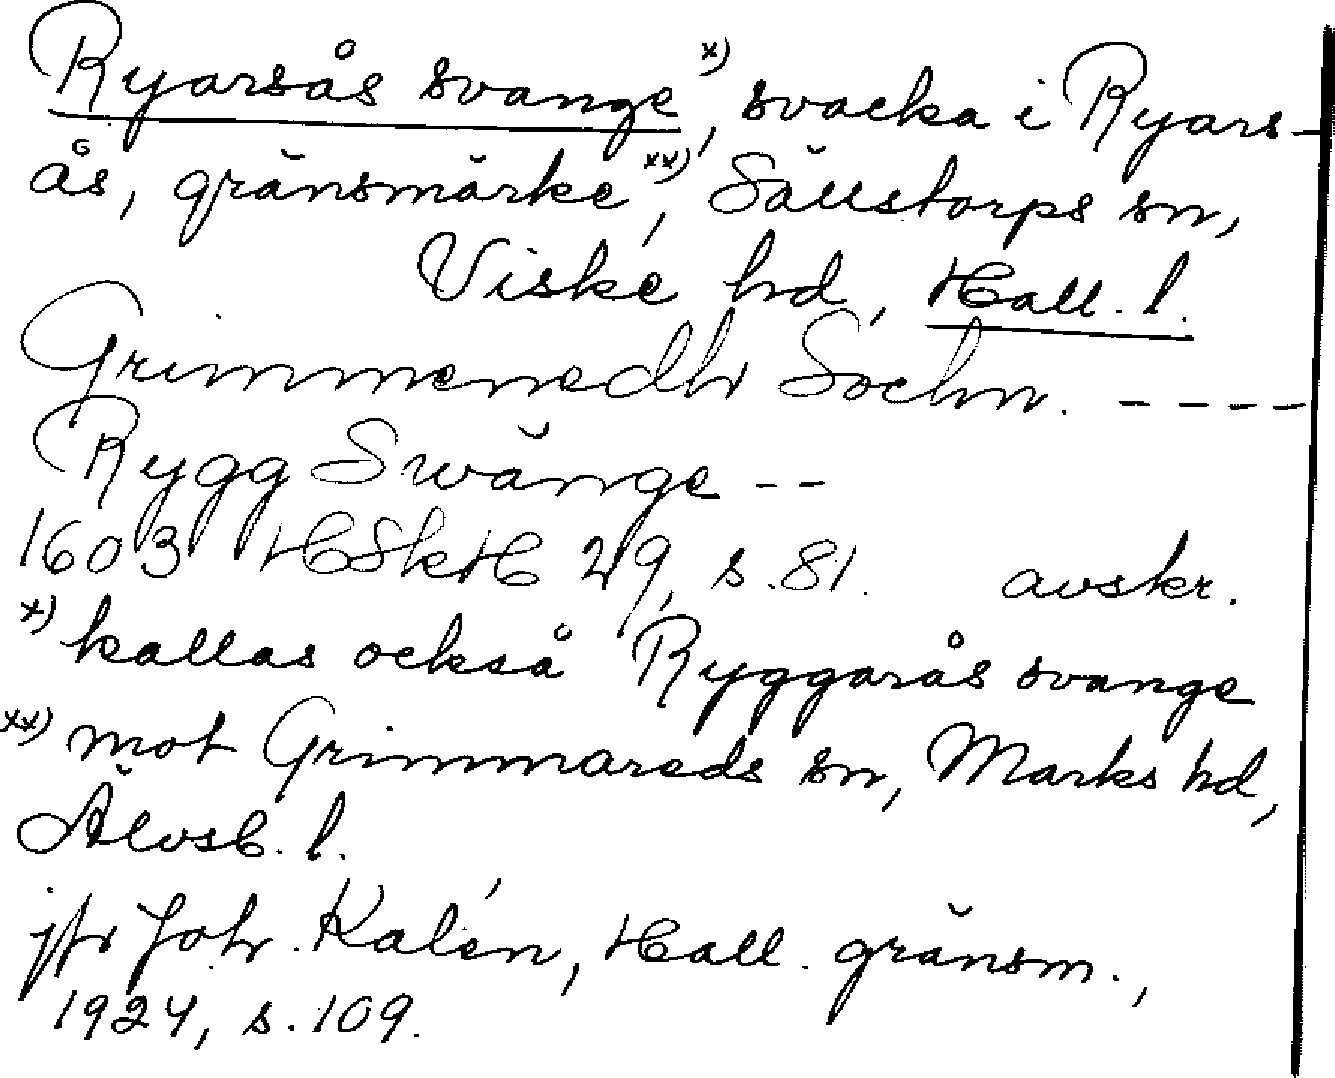 Ryarsås svange x), svacka i Ryars-
ås, gränsmärke xx), Sällstorps sn,
Viske hd, Hall. l.
Grimmenedh Sochn. ----
Rygg Swänge --
1603 HSkH 29, s. 81. avskr.
x) kallas också Ryggarås svange
xx) mot Grimmareds sn, Marks hd,
Älvsb. l.
jfr Joh. Kalén, Hall. gränsm.,
1924, s. 109.